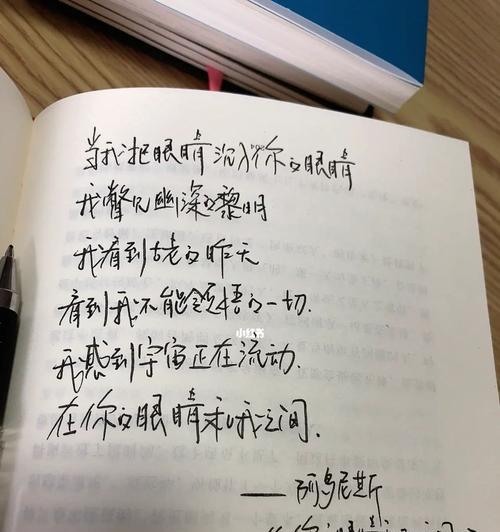 当我把眼睛沉入你的眼睛
我瞥见幽深的黎明
我看到古老的昨天
看到我不能领悟的一切.
我感到宇宙正在流动.
在你的眼睛和我之间.
小红书
——阿多尼斯